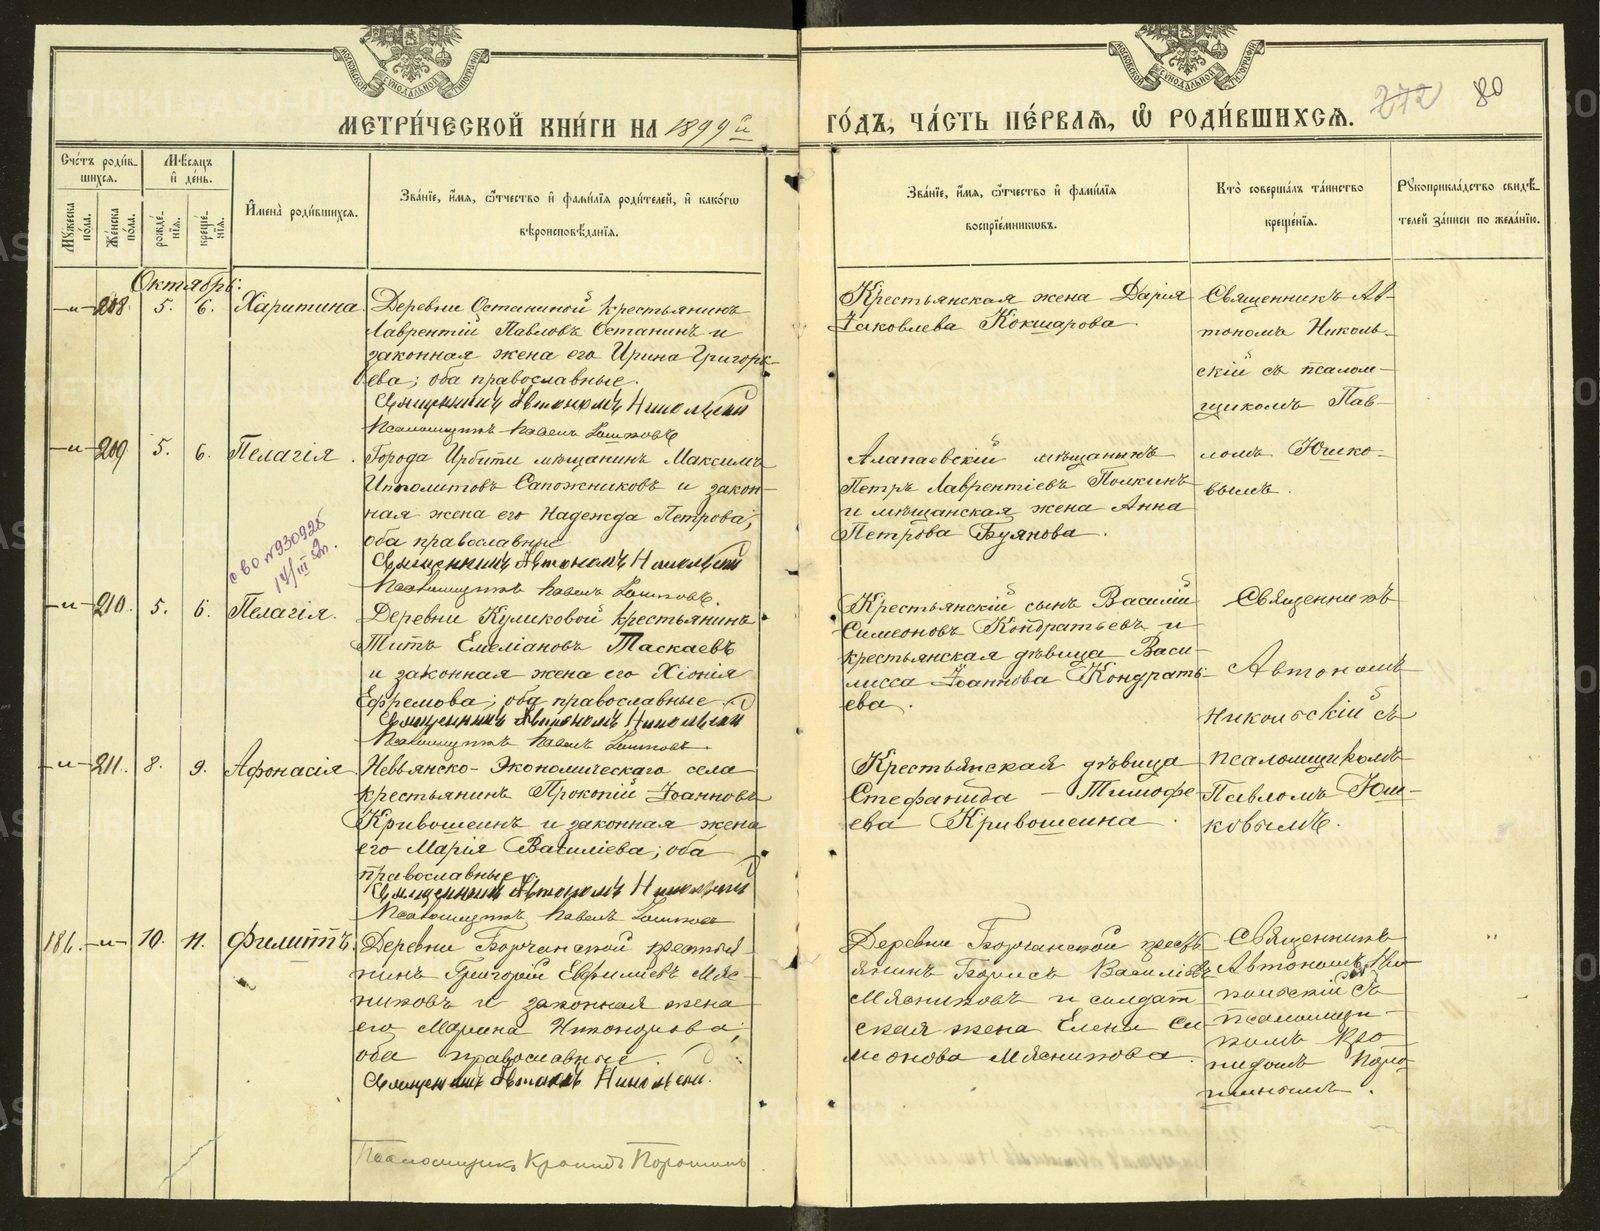 МЕТРИ́ЧЕСКОЙ КНИ́ГИ НА 1899 й
ГО́ДЪ, ЧА́СТЬ ПЕ́РВАѦ, Ѡ РОДИ́ВШИХСѦ.
272 80
Сче́тъ роди́в-
шихся.
Мѣ́сяцъ
и҆ де́нь.
Мꙋ́жеска
по́ла.
Же́нска
по́ла.
рожде́-
нїѧ.
креще́-
нїѧ.
И҆мена̀ роди́вшихся.
Зва́нїе, и҆́мѧ, ѻ҆́тчество и҆ фами́лїѧ роди́телей, и҆ како́гѡ
вѣроисповѣ́данїѧ.
Зва́нїе, и҆́мѧ, ѻ҆́тчество и҆ фами́лїѧ
воспрїе́мникѡвъ.
Кто̀ соверша́лъ та́инство
креще́нїѧ.
Рꙋкоприкла́дство свидѣ́-
телей за́писи по жела́нїю.
Октябрь:
—и— 208. 5. 6. Харитина.
Деревни Останиной крестьянинъ
Лаврентій Павловъ Останинъ и
законная жена его Ирина Григорь-
ева; оба православные.
Священникъ Автономъ Никольскій
Псаломщикъ Павелъ Юшковъ
Крестьянская жена Дарія
Іаковлева Кокшарова.
Священникъ Ав-
тономъ Николь-
скій съ псалом-
щикомъ Пав-
ломъ Юшко-
вымъ.
—и— 209. 5. 6. Пелагія.
Города Ирбити мѣщанинъ Максимъ
Ипполитовъ Сапожниковъ и закон-
ная жена его Надежда Петрова;
оба православные
Священникъ Автономъ Никольскій
Псаломщикъ Павелъ Юшковъ.
Алапаевскій мѣщанинъ
Петръ Лаврентіевъ Полкинъ
и мѣщанская жена Анна
Петрова Буянова.
с во №930925
17/III
—и— 210. 5. 6. Пелагія.
Деревни Куликовой крестьянинъ
Титъ Емеліановъ Таскаевъ
и законная жена его Хіонія
Ефремова; оба православные.
Священникъ Автономъ Никольскій
Псаломщикъ Павелъ Юшковъ.
Крестьянскій сынъ Василій
Симеоновъ Кондратьевъ и
крестьянская дѣвица Васи-
лисса Іоаннова Кондрать-
ева.
Священникъ
Автономъ
Никольскій съ
псаломщикомъ
Павломъ Юш-
ковымъ.
—и— 211. 8. 9. Афонасія.
Невьянско-Экономическаго села
крестьянинъ Прокопій Іоанновъ
Кривошеинъ и законная жена
его Марія Василіева; оба
православные.
Священникъ Автономъ Никольскій
Псаломщикъ Павелъ Юшковъ
Крестьянская дѣвица
Стефанида Тимофе-
ева Кривошеина.
186. —и— 10. 11. Филиппъ.
Деревни Борчанской крестья-
нинъ Григорій Евфиміевъ Мяс-
никовъ и законная жена
его Марина Никонорова;
оба православные.
Священникъ Автономъ Никольскій.
Псаломщикъ Кронидъ Порошинъ
Деревни Борчанской кресть-
янинъ Борисъ Василіевъ
Мясниковъ и солдат-
ская жена Елена Си-
меонова Мясникова.
Священникъ
Автономъ Ни-
кольскій съ
псаломщи-
комъ Кро-
нидомъ Поро-
шинымъ.